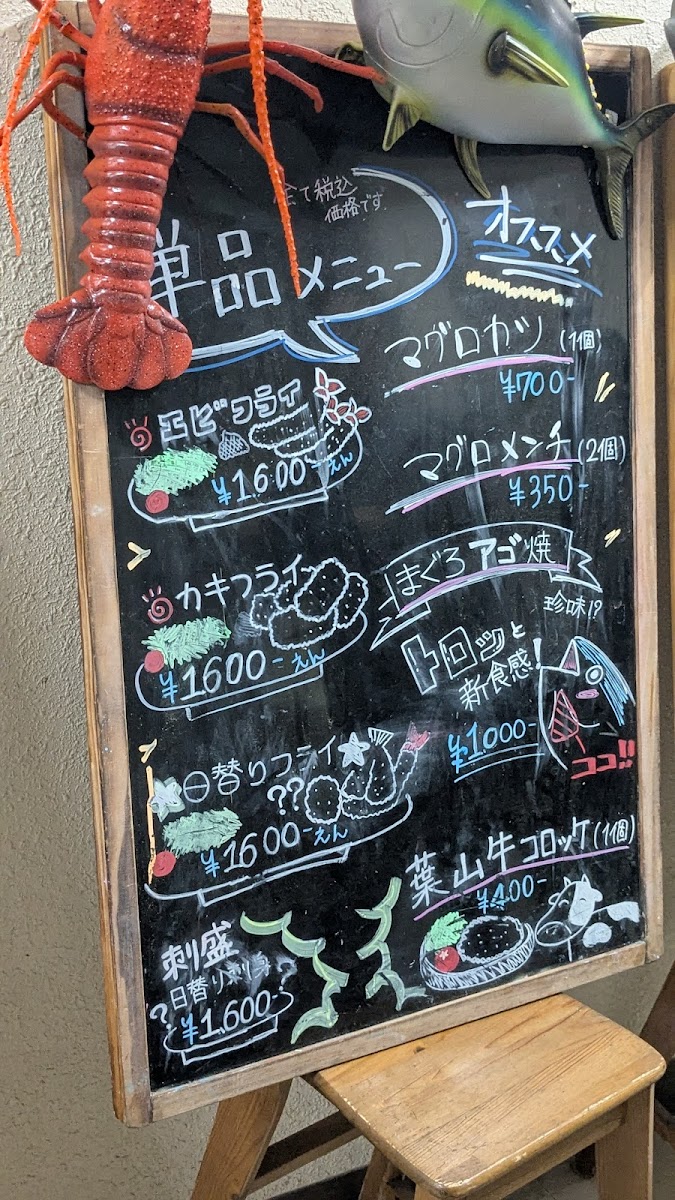 全て税込
価格です
単品メニュー
オススメ
エビフライ
¥1600-えん
カキフライ
¥1600-えん
日替りフライ
??
¥1600-えん
刺盛
?日替り刺身?
¥1,600-
マグロカツ(1個)
¥700-
マグロメンチ(2個)
¥350-
まぐろアゴ焼
珍味!?
トロッと
新食感!
¥1000-
ココ!!
葉山牛コロッケ(1個)
¥400-